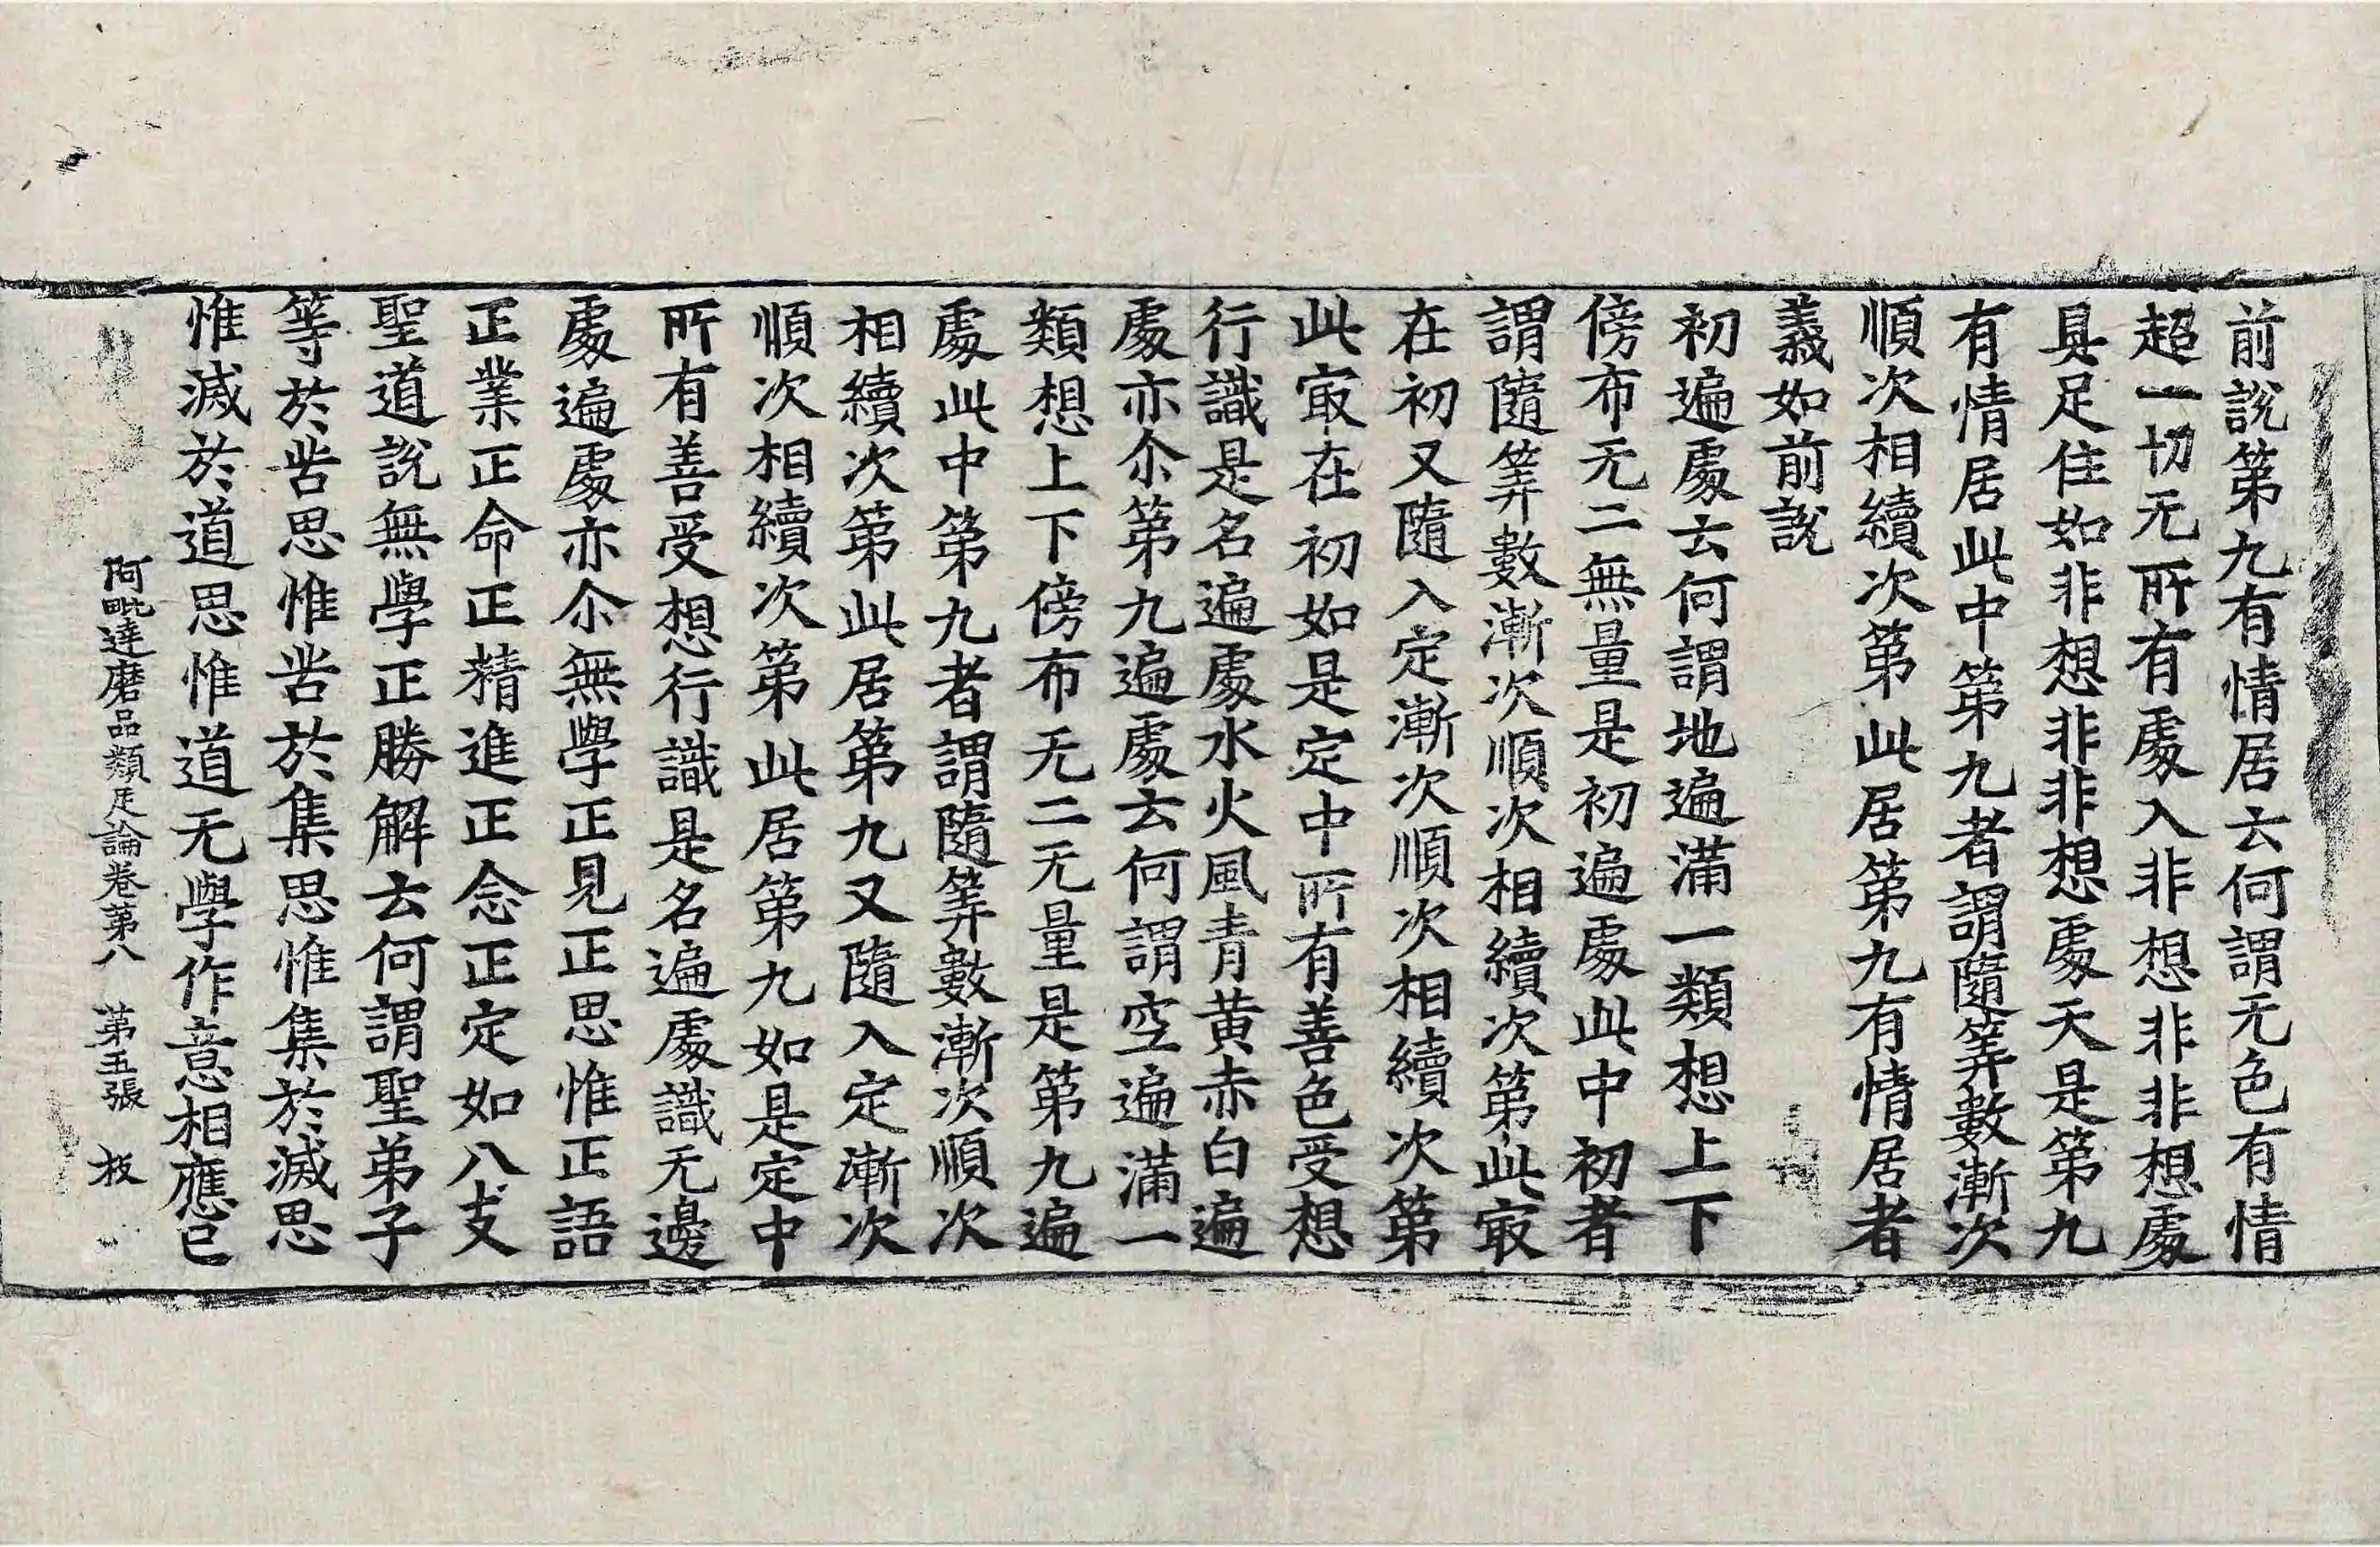 前說第九有情居云何謂无色有情
超一切无所有處入非想非非想處
具足住如非想非非想處天是第九
有情居此中第九者謂隨筭數漸次
順次相續次第此居第九有情居者
義如前說
初遍處云何謂地遍滿一類想上下
傍布无二無量是初遍處此中初者
謂隨筭數漸次順次相續次第此㝡
在初又隨入定漸次順次相續次第
此㝡在初如是定中所有善色受想
行識是名遍處水火風青黃赤白遍
處亦尒第九遍處云何謂空遍滿一
類想上下傍布无二无量是第九遍
處此中第九者謂隨筭數漸次順次
相續次第此居第九又隨入定漸次
順次相續次第此居第九如是定中
所有善受想行識是名遍處識无邊
處遍處亦尒無學正見正思惟正語
正業正命正精進正念正定如八支
聖道說無學正勝解云何謂聖弟子
等於苦思惟苦於集思惟集於滅思
惟滅於道思惟道无學作意相應已
阿毗達磨品類足論卷第八 第五張 板